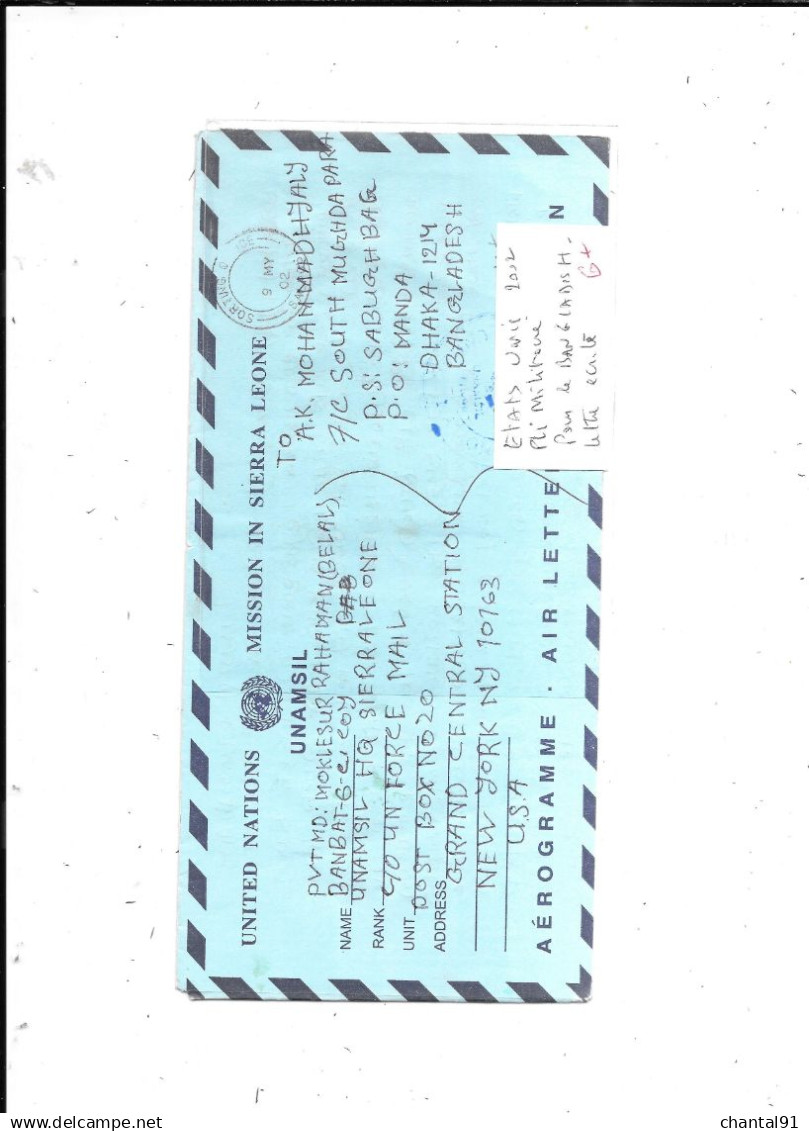 UNITED NATIONS MISSION IN SIERRA LEONE
UNAMSIL
PVT MD: MOKLESUR RAHAMAN (BELAL)
BANBAT-6-C, COY
NAME UNAMSIL HQ SIERRALEONE
RANK C/O UN FORCE MAIL
UNIT POST BOX NO 20
ADDRESS GRAND CENTRAL STATION
NEW YORK NY 10163
U.S.A
TO
A.K. MOHAN MADHYALY
7/C SOUTH MUGHDAPARA
P.S: SABUGHBAG
P.O: MANDA
DHAKA-1214
BANGLADESH
9 MY
02
AÉROGRAMME · AIR LETTE
N
ETATS Unis 2002
Pli Militaire
Pour le BANGLADISH-
lettre ecrite
G+
chantal91